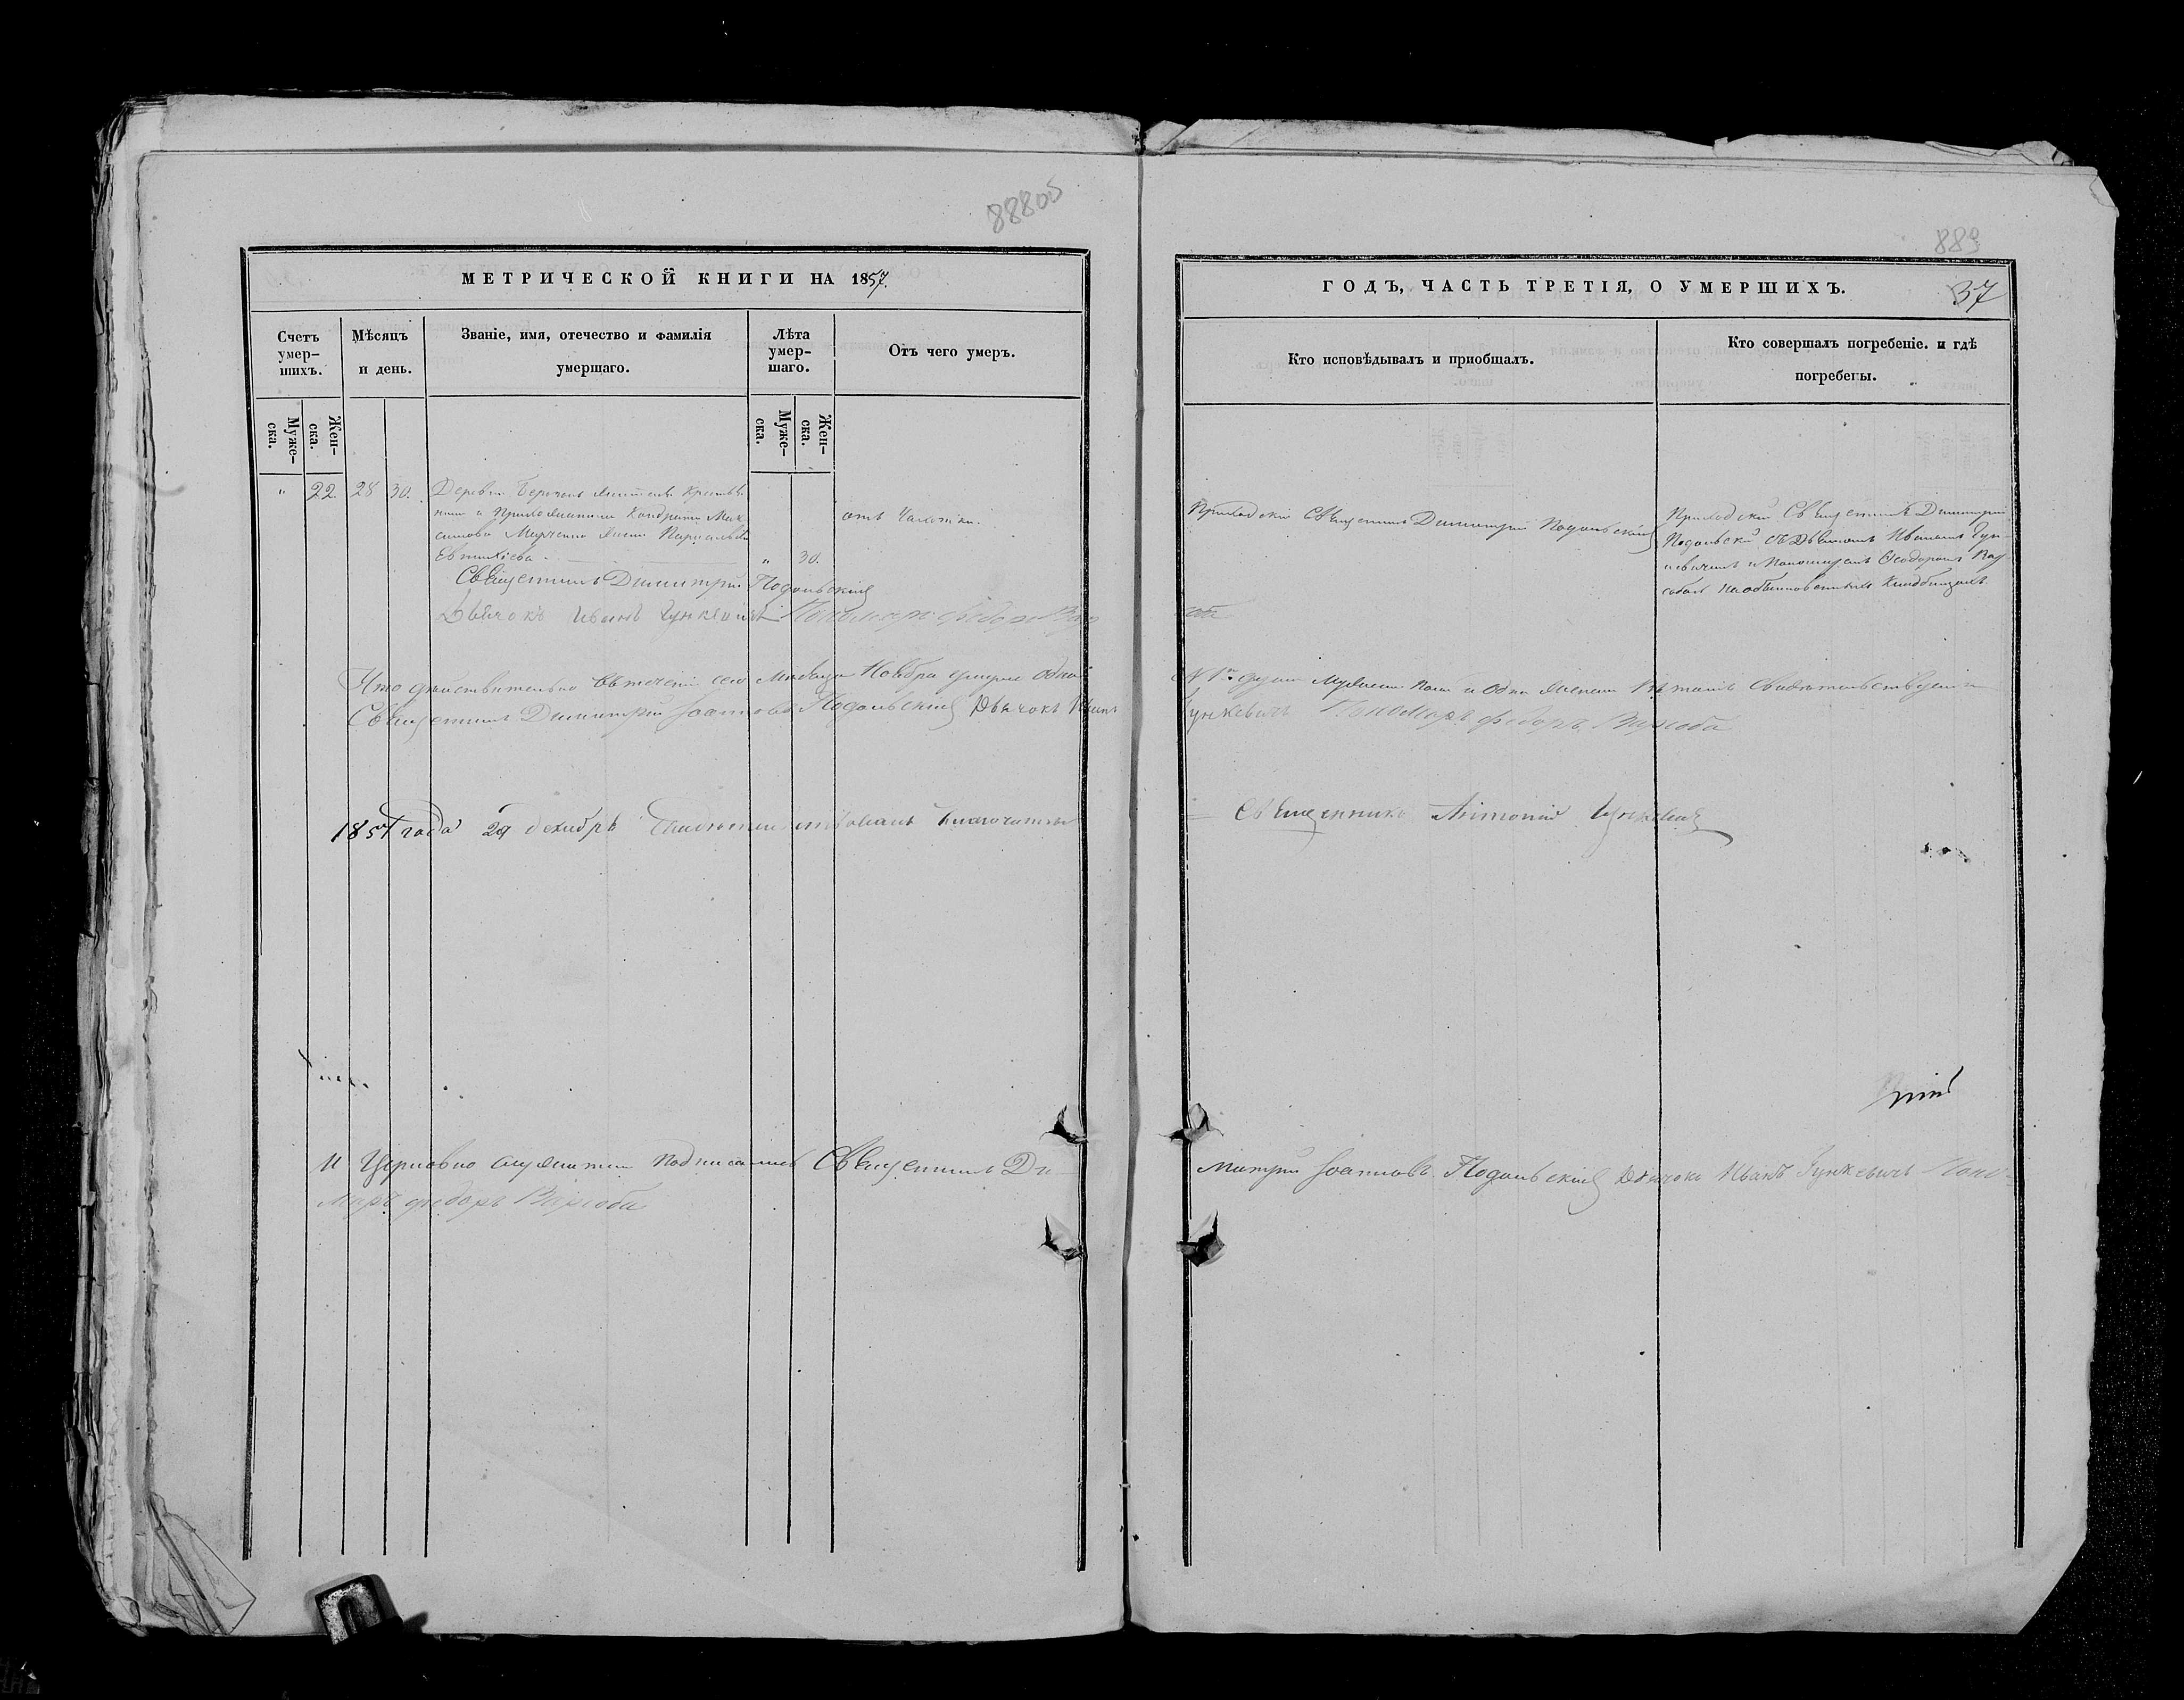 888об
МЕТРИЧЕСКОЙ КНИГИ НА 1857.
Счетъ умер-шихъ.
Мѣсяцъ и день.
Званіе, имя, отечество и фамилія умершаго.
Лѣта умер-шаго.
Отъ чего умеръ.
Муже-ска.
Жен-ска.
Муже-ска.
Жен-ска.
" 22. 28 30. Деревни жителя Крестья
нина и Прихожанина Кондратія Мак
симова Марченка жена
Евтихіева " 30.
отъ Чахотки.
Священникъ Димитрій Подольскій
Дьячокъ Иванъ Гункевичъ Пономарь Федоръ
Что дѣйствительно въ теченіи сего Мѣсяца Ноября умерло одна
Священникъ Димитрій Іоанновъ Подольскій Дьячокъ Иванъ
1857 года 29 декабря Свидѣтельствовалъ Благочинный
И Церковно служители подписались Священникъ Ди-
маръ Федоръ
889
ГОДЪ, ЧАСТЬ ТРЕТІЯ, О УМЕРШИХЪ.
37
Кто исповѣдывалъ и пріобщалъ.
Кто совершалъ погребеніе. и гдѣ погребены.
Приходскій Священникъ Димитрій Подольскій
Приходскій Священникъ Димитрій
Подольскій съ Дьячкомъ Иваномъ Гун-
кевичемъ и Пономаремъ Ѳеодоромъ
на обыкновенномъ Кладбищѣ.
душа Мужеска пола и Одна женска въ томъ Свидѣтельствуемъ
Гункевичъ Пономарь Федоръ
Священникъ Антоній Гункевичъ
митрій Іоанновъ Подольскій Дьячокъ Иванъ Гункевичъ Поно-